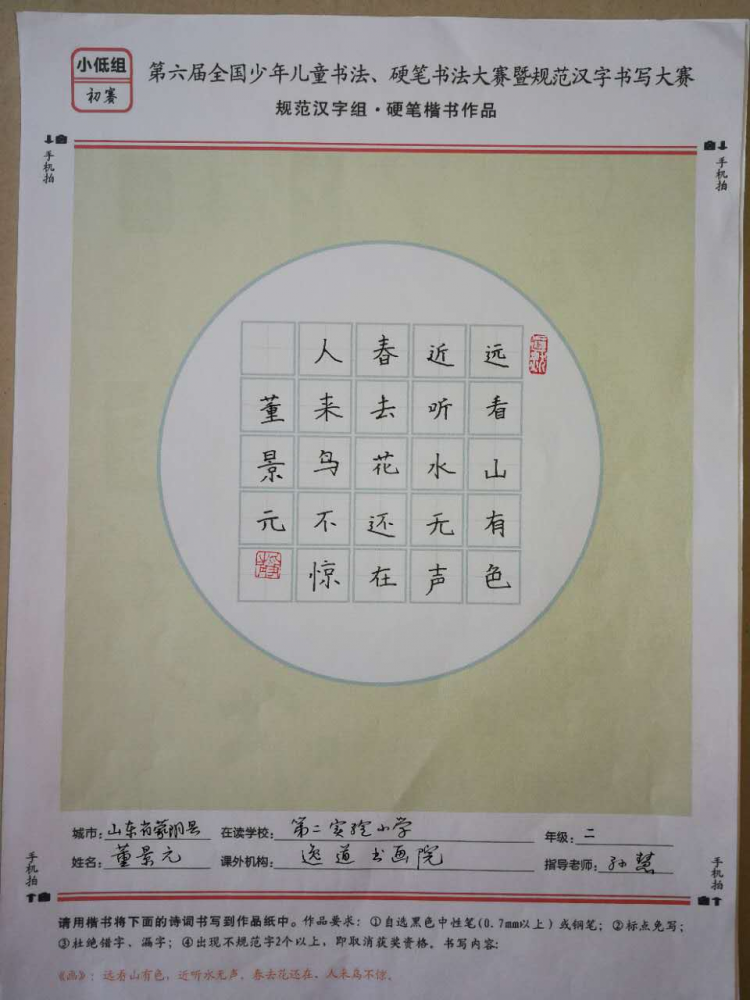 小低组
初赛
第六届全国少年儿童书法、硬笔书法大赛暨规范汉字书写大赛
规范汉字组·硬笔楷书作品
手机拍
手机拍
远看山有色
近听水无声
春去花还在
人来鸟不惊
董景元
城市：山东省蒙阴县 在读学校：第二实验小学 年级：二
姓名：董景元 课外机构：逸道书画院 指导老师：孙慧
手机拍
手机拍
请用楷书将下面的诗词书写到作品纸中。作品要求：①自选黑色中性笔(0.7mm以上）或钢笔；②标点免写；
③杜绝错字、漏字；④出现不规范字2个以上，即取消获奖资格。书写内容：
《画》：远看山有色，近听水无声。春去花还在，人来鸟不惊。